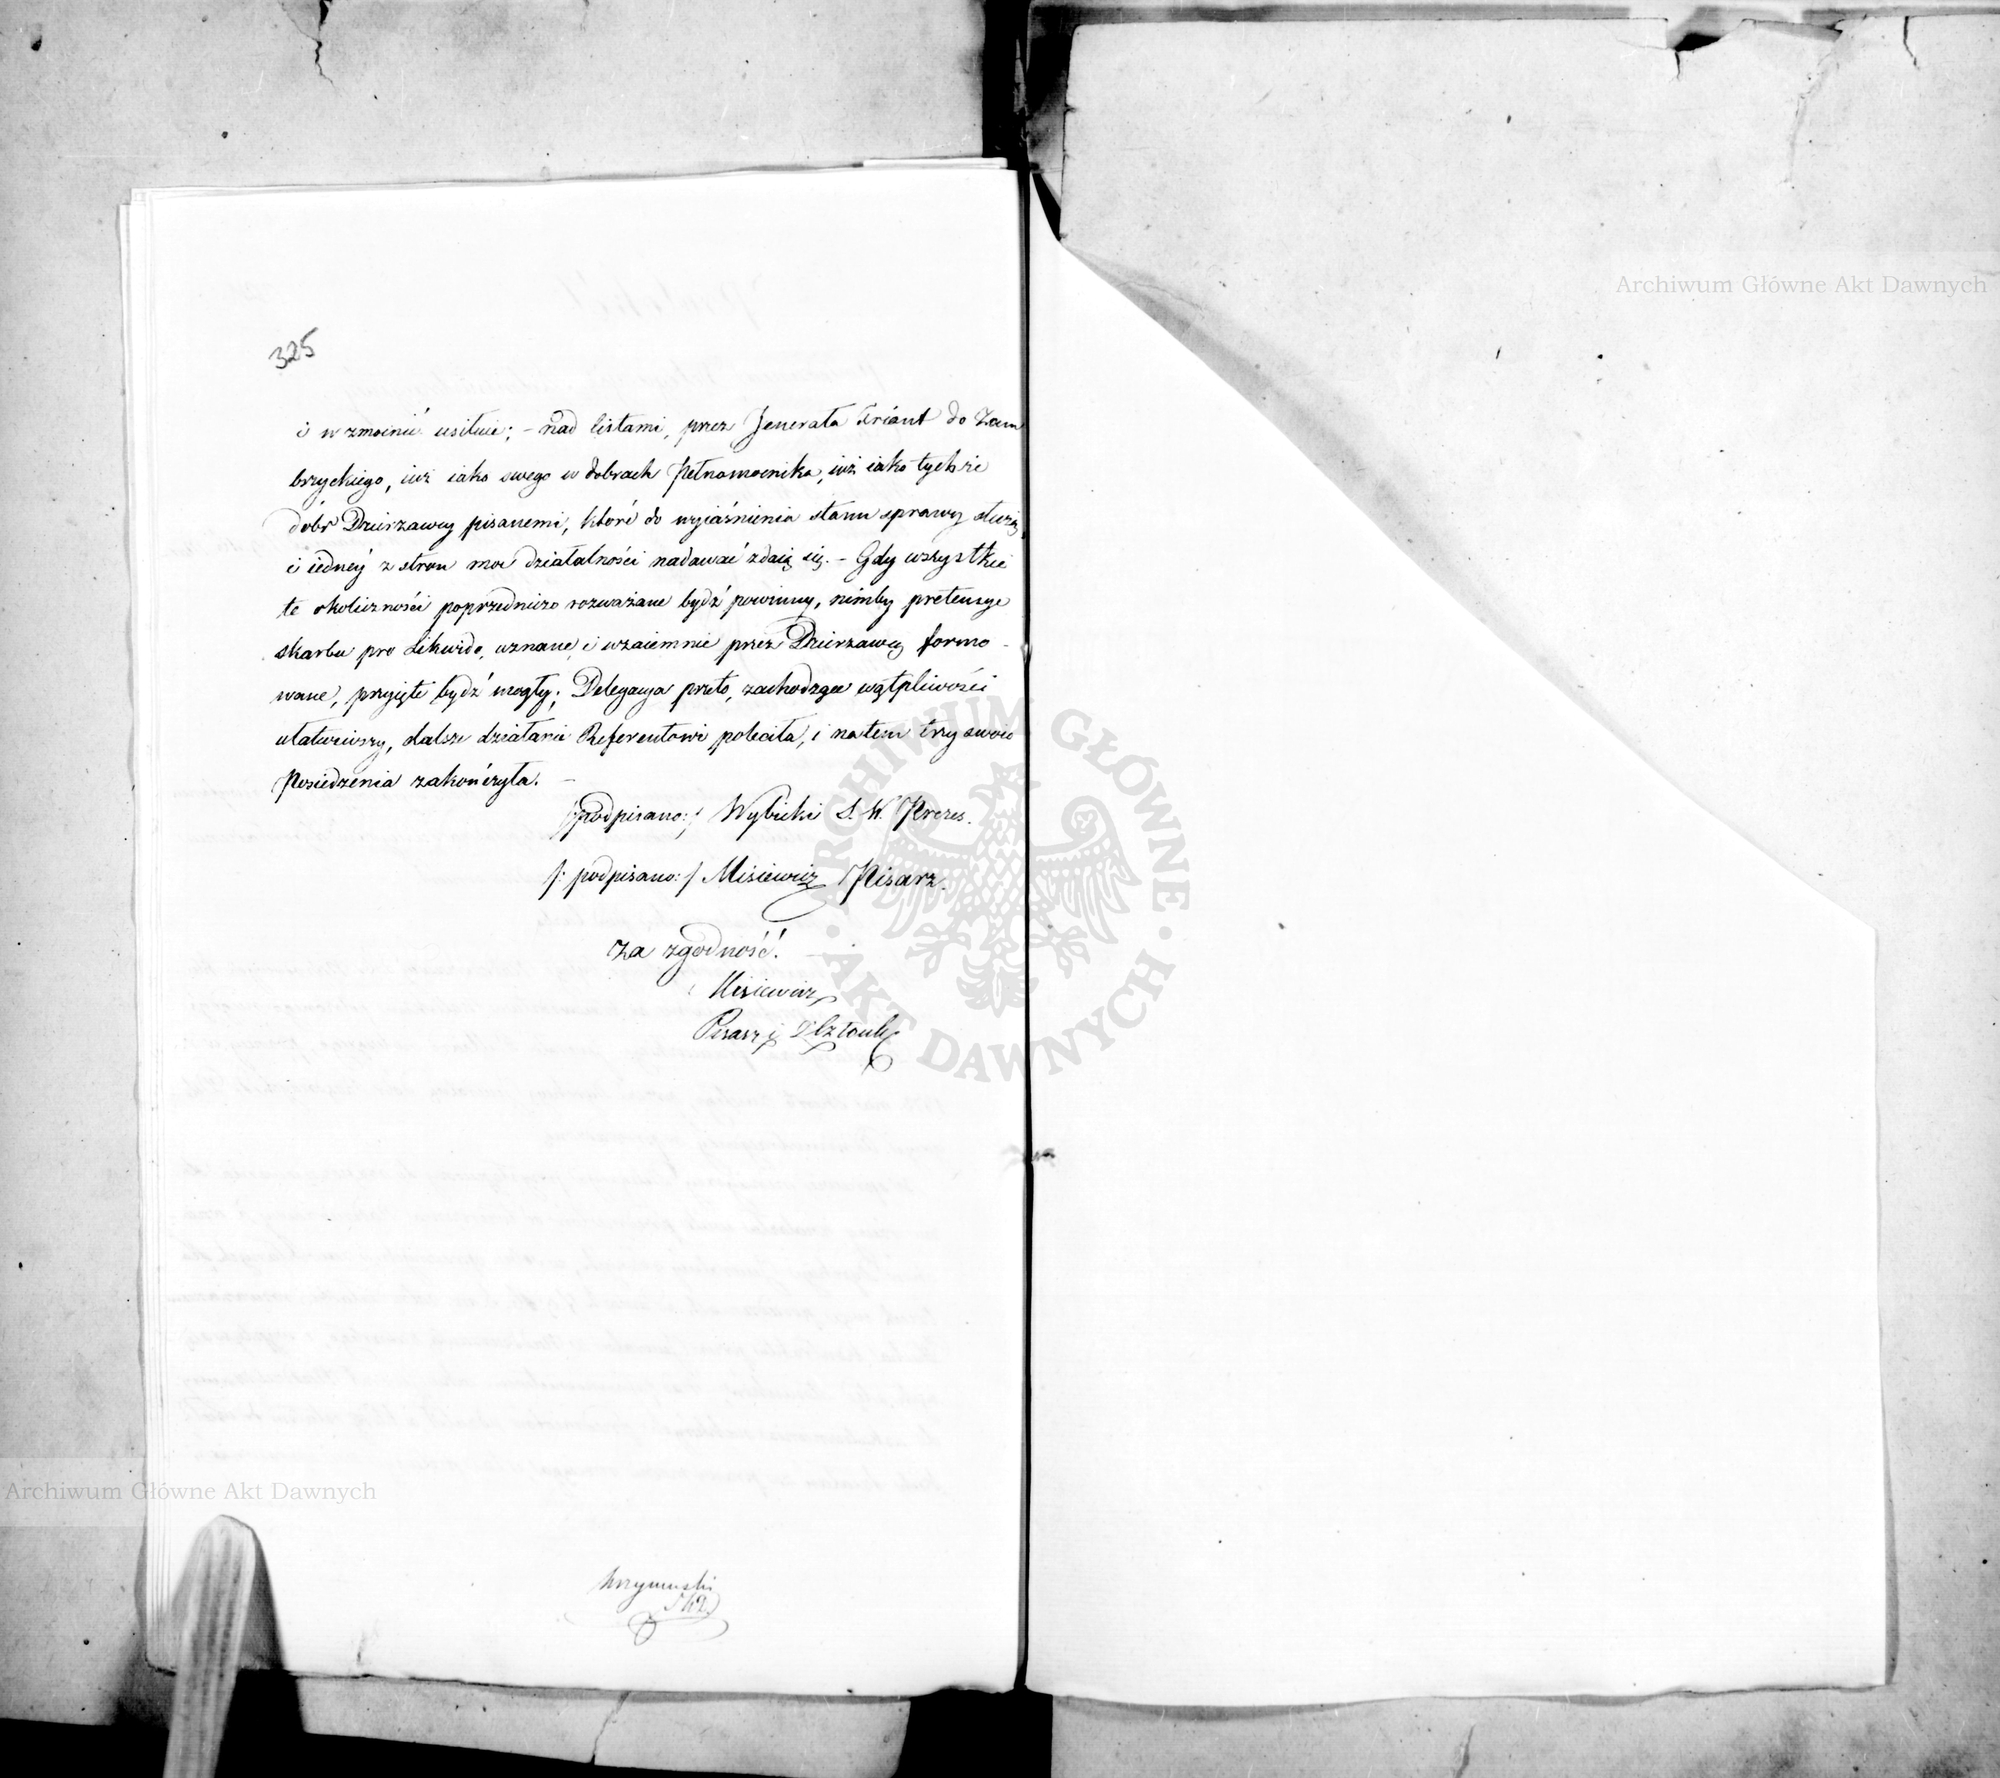 325
i wzmocnić usiłuie; – nad listami, przez Jenerała Friant do Zam
brzyckiego, iuż iako swego w dobrach Pełnomocnika, iuż iako tychże
dóbr Dzierzawcy pisanemi, które do wyiaśnienia stanu sprawy służą
i iedney z stron moc działalności nadawać zdaią się. – Gdy wszystkie
te okoliczności poprzedniczo rozważane bydź powinny, nimby pretensye
skarbu pro Likwido, uznane, i wzaiemnie przez Dzierzawcę formo-
wane, przyięte bydź mogły; Delegacya przeto, zachodzące wątpliwości
ułatwiwszy, dalsze działanie Referentowi poleciła, i na tem trzy swoie
Posiedzenia zakończyła. –
/:podpisano:/ Wybicki S. W. Prezes.
/: podpisano:/ Misiewicz Pisarz.
Za zgodność.
Misiewicz
Pisarz
Archiwum Główne Akt Dawnych
Archiwum Główne Akt Dawnych
ARCHIWUM GŁÓWNE
AKT DAWNYCH